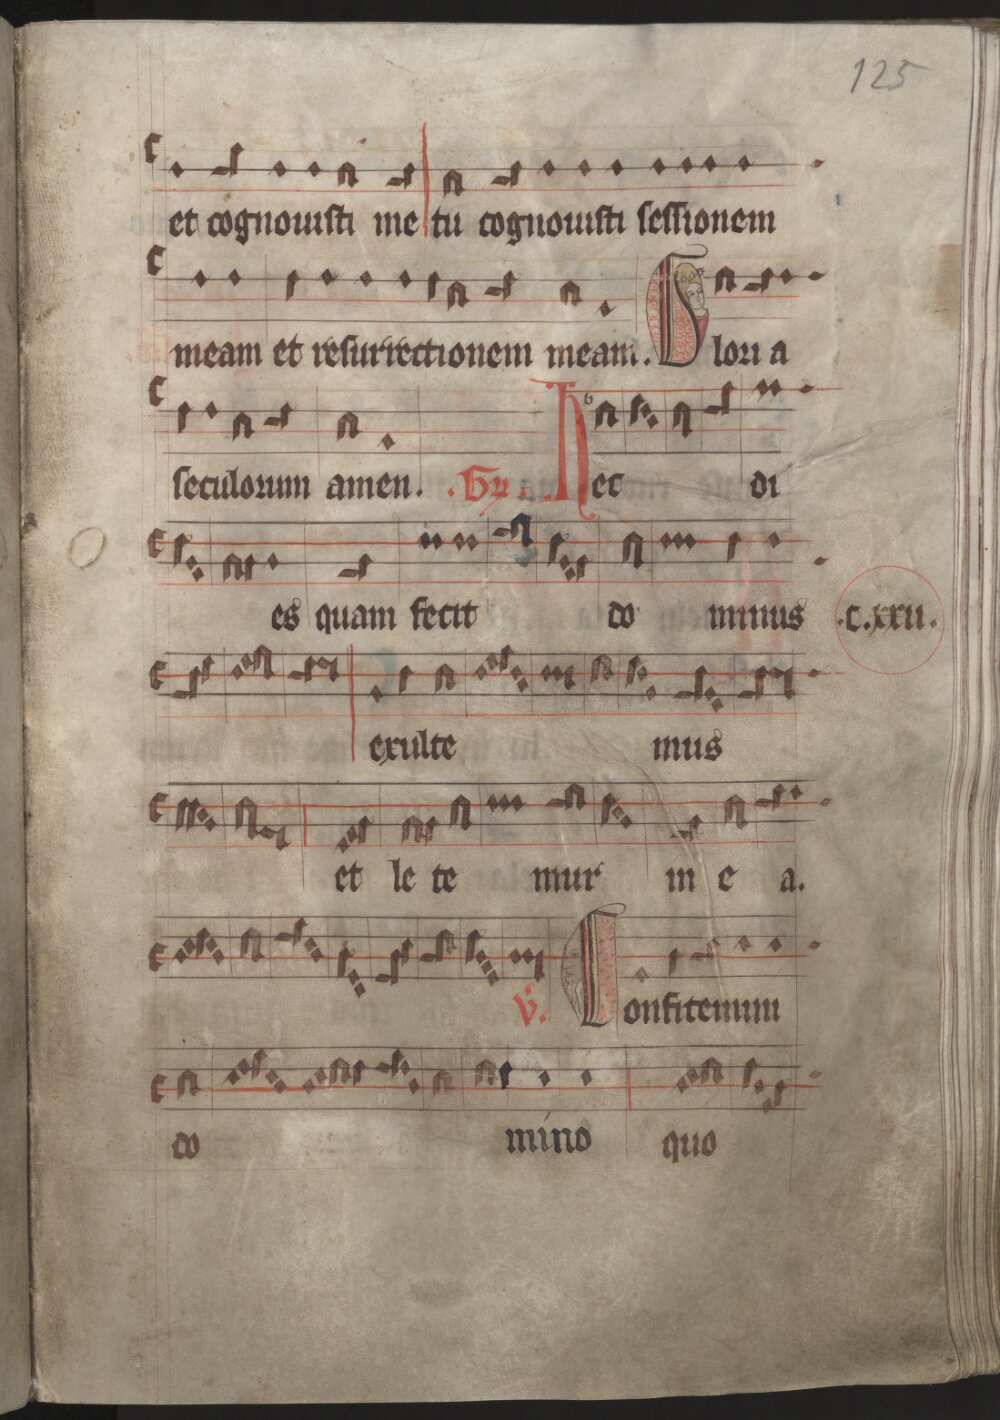 125
et cognouisti me tu cognouisti sessionem
meam et resurrectionem meam. Glori a
seculorum amen. .Gr. Hec di
es quam fecit do minus .C.xxii.
exulte mus
et le te mur in e a.
V. Confitemini
do mino quo